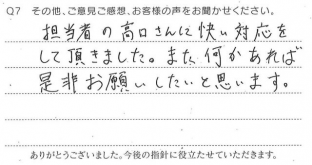 Q7 その他、ご意見ご感想、お客様の声をお聞かせください。
担当者の高口さんに快い対応を
して頂きました。また、何かあれば
是非お願いしたいと思います。
ありがとうございました。今後の指針に役立たせていただきます。